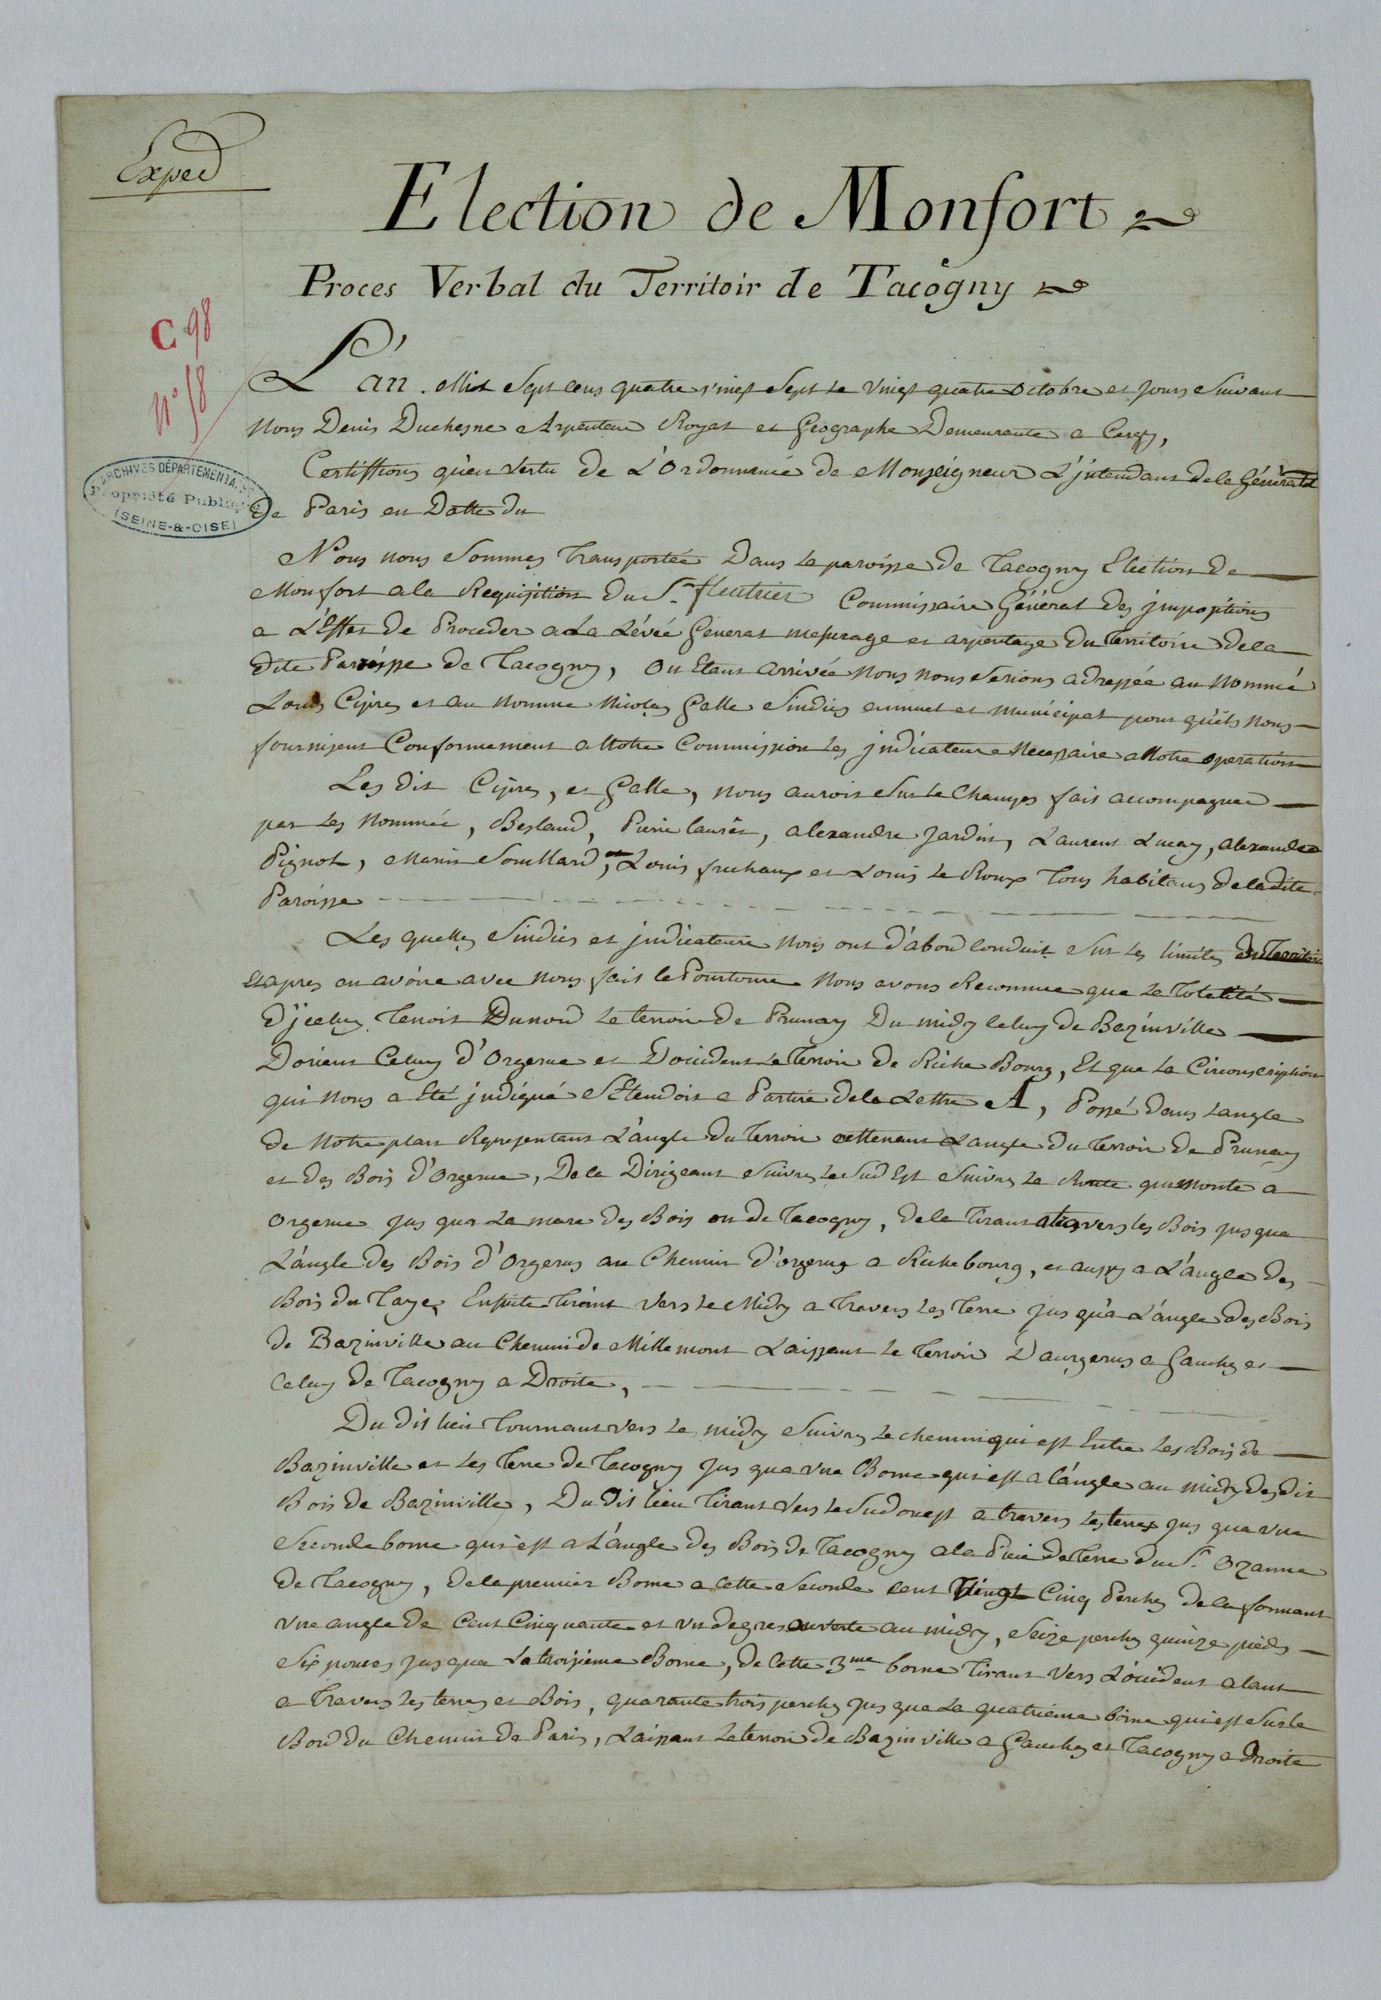 Exped
Election de Monfort
Proces Verbal du Territoir de Tacogny
C 98
n° 58
ARCHIVES DÉPARTEMENTALES
Propriété Publique
(SEINE-&-OISE)
L'an Mil Sept Cens quatre vingt Sept le vingt quatre Octobre et jours Suivant
Nous Denis Duchesne Arpenteur Royal et Géographe Demeurante a Cergy,
Certiffions qu'en vertu de L'Ordonnance de Monseigneur L'jntendant de la Généralité
de Paris en Datte du
Nous nous Sommes Transportée Dans la paroisse de Tacogny Election de
Monfort a la Requisition du Sr. fleutrier Commissaire Général des jmpositions
a L'Effet de Proceder a La Lévée General mesurage et arpentage du Territoire de la
dite Paroisse de Tacogny, Ou Etant Arrivée Nous nous Serions adressée au Nommé
Louis Cipres et au nommé Nicolas Galle Sindics annuel et municipal pour qu'ils nous
fournisent Conformement a Notre Commission les jndicateur Necessaire a Notre operation
Les dit Cipres, et Galle, nous auroit Sur le Champs fait accompagner
par les Nommée, Besland, Pierre laurêt, alexandre jardin, Laurent Lucay, alexandre
Pignot, Marin Souillard, et Louis fruchaux et Louis Le Roux Tous habitans de la dite
Paroisse
Les quelles Sindics et jndicateure Nous ont d'abord conduit Sur les limites du Territoire
Et apres en avoire avec nous fait le Pourtoure Nous avons Reconnue que La Totalité
D'jceluy Tenoit Du nord Le terroir de Prunay Du midy celuy de Bazinville
Dorient Celuy d'Orgerue et Doccident le Terroir de Riche Bourg, Et que La Circonscription
qui Nous a Eté jndiqué S'Etendoit a Partire de la Lettre A, Possé dans L'angle
de Notre plan Representant L'angle du Terroir attenant L'angle du Terroir de Prunay
et des Bois d'Orgerue, De la Dirigeant Suivre Le Sud Est Suivre La Route qui Monte a
Orgerue jus qua La mare des Bois ou de Tacogny, de la Tirant atravers les Bois jus qua
L'angle des Bois d'Orgerus au Chemin d'orgerus a Riche bourg, et aussy a L'angle des
Bois du Taye, Ensuite Tirant Vers Le Midy a Travers Les Terre jus qu'a L'angle des Bois
de Bazinville au Chemin de Millemont Laissant Le Terroir D'aurgerus a Gauche et
Celuy de Tacogny a Droite,
Du dit lieu Tournant vers Le midy Suivre Le chemin qui est Entre Les Bois de
Bazinville et Les Terre de Tacogny jus qua vne Borne qui est a l'angle au midy des dit
Bois de Bazinville, Du Dit lieu Tirant vers le Sud ouest a travers Les terres jus qua vne
Seconde borne qui est a L'angle des Bois de Tacogny a la Piéce de Terre du Sr. Ozanne
de Tacogny, de la premier Borne a cette Seconde Cent Vingt Cinq Perches de la formant
vne angle de Cent Cinquante et vn degres ouverte au midy, Seize perches quinze pieds
Six pouces jus qua La troisieme Borne, de Cette 3me borne Tirant Vers L'occident alant
a Travers Les terres et Bois, quarante trois perches jus que La quatriéme borne qui est Sur le
Bord du Chemin de Paris, Laissant Le terroir de Bazinville a Gauche et Tacogny a Droite